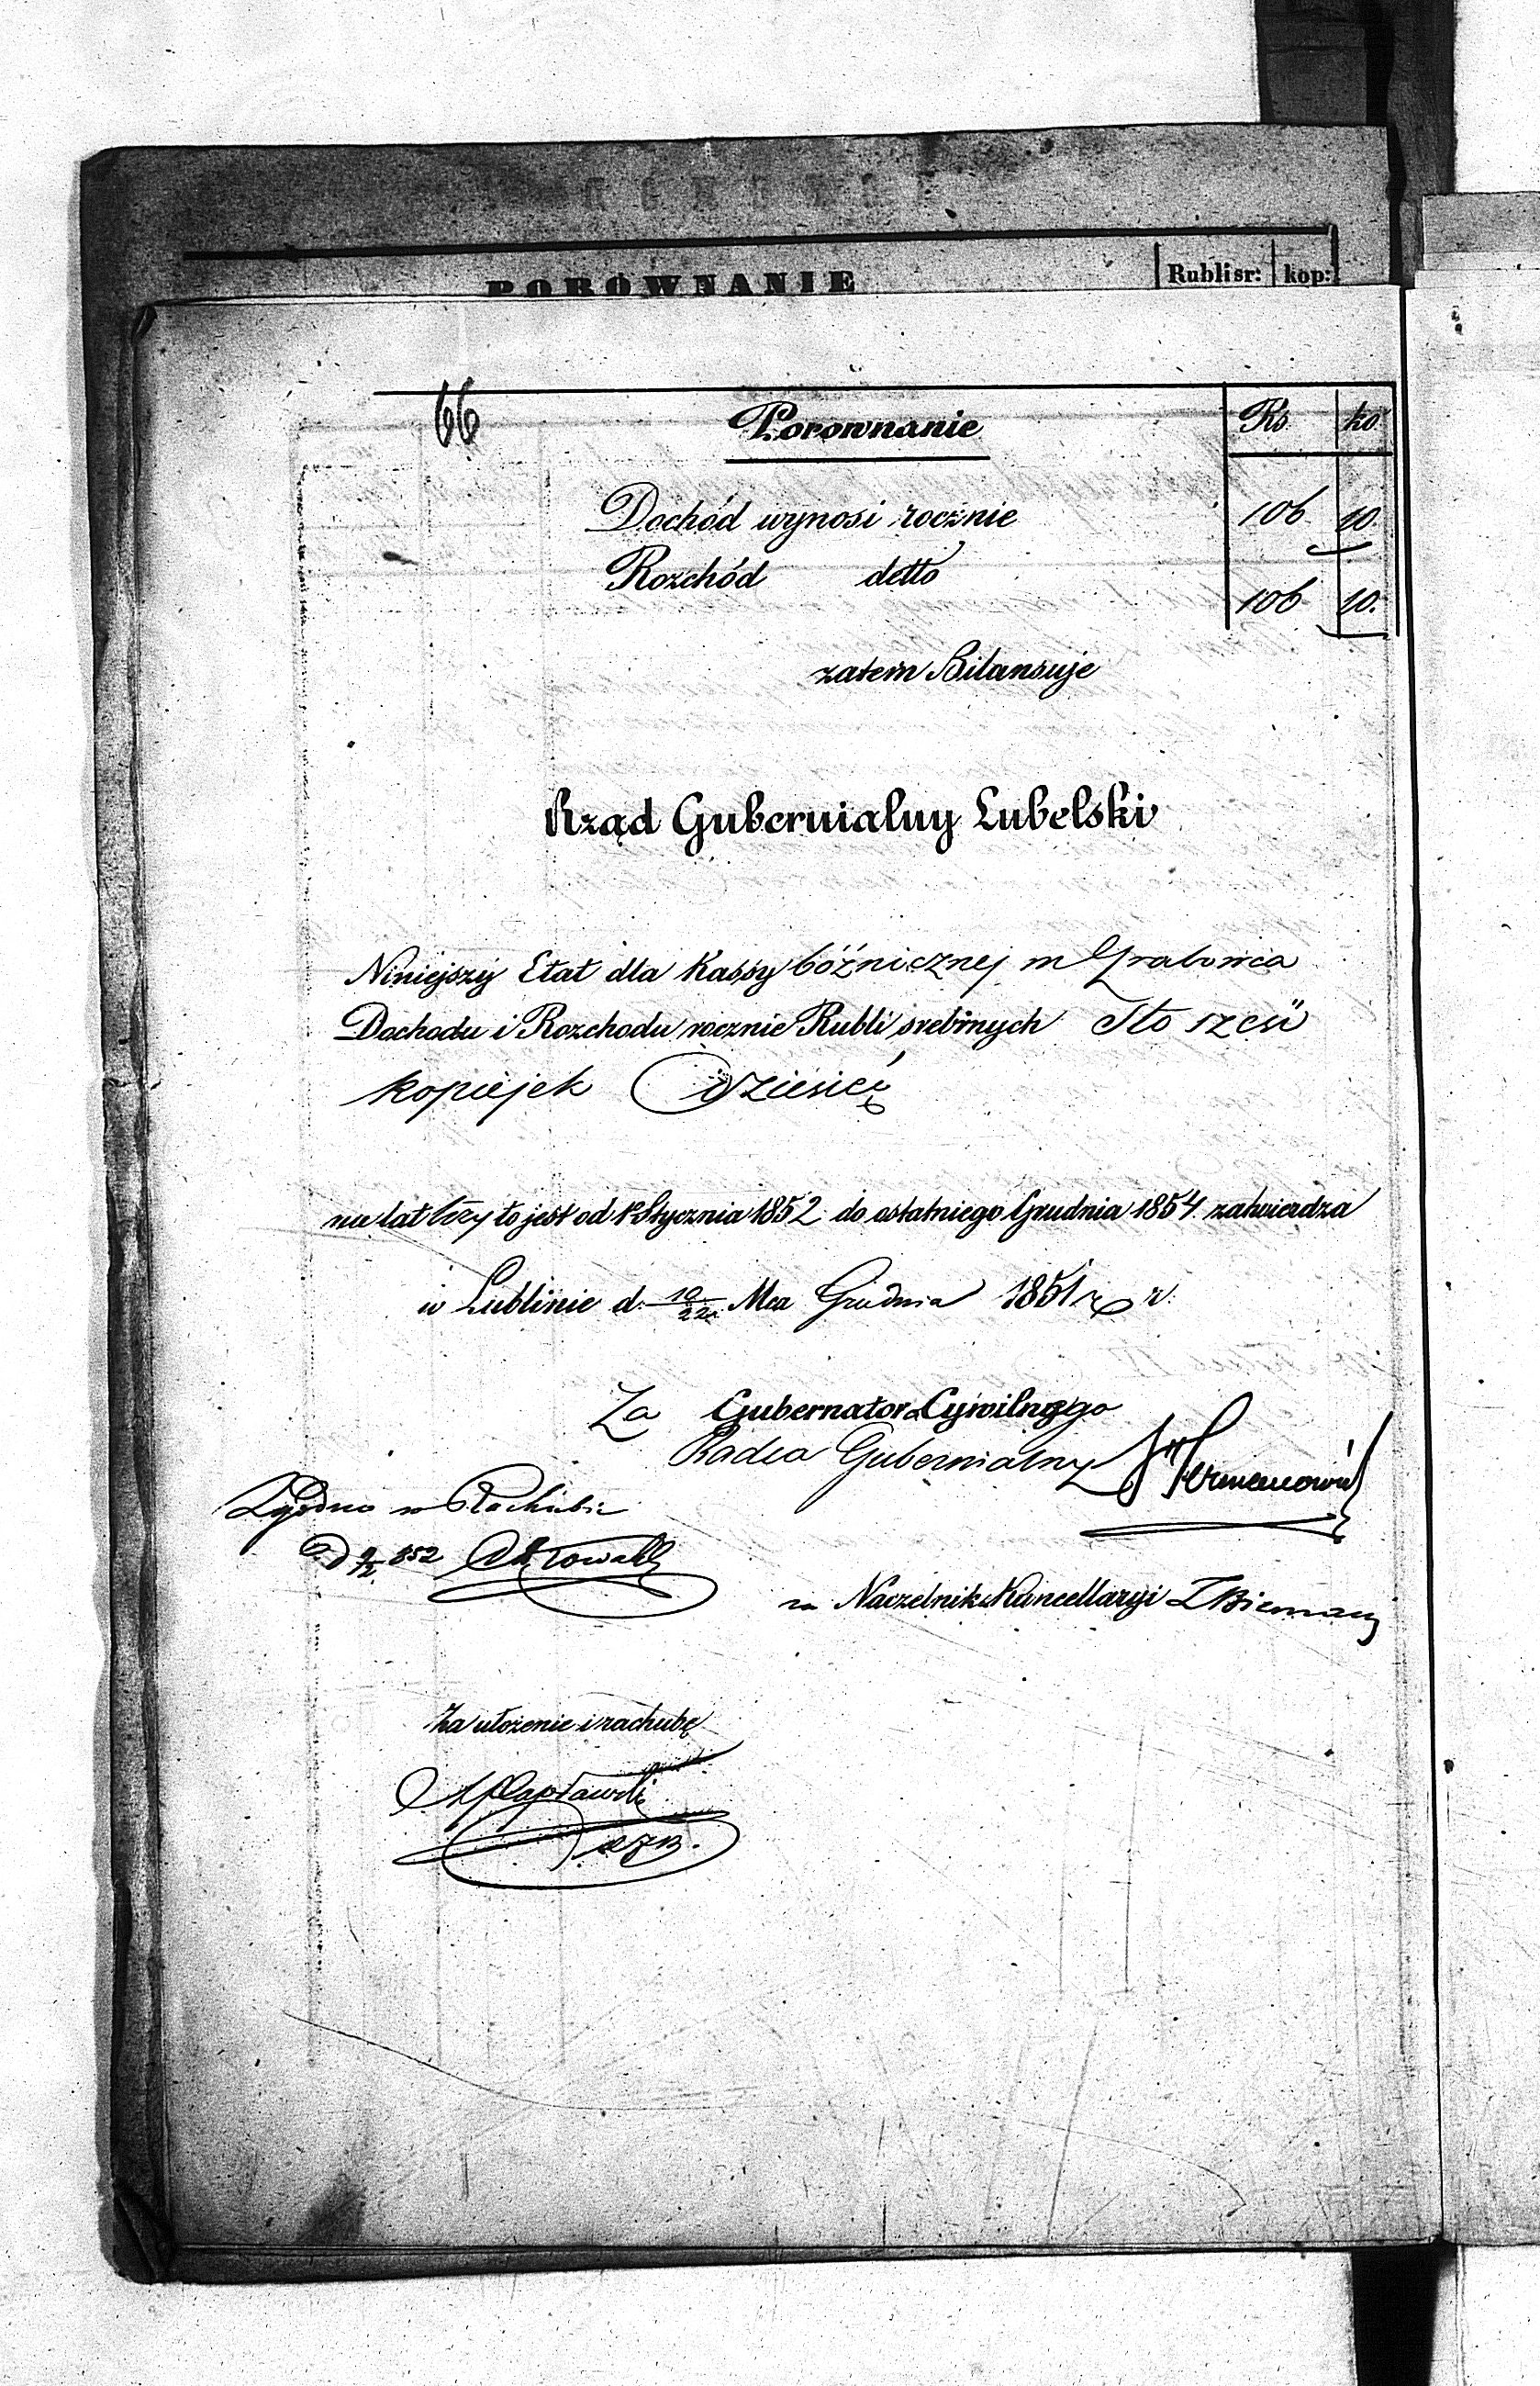 PORÓWNANIE Rubli sr: kop:
66 Porownanie Rs ko
Dochód wynosi rocznie 106 10.
Rozchód detto 106 10.
zatem Bilansuje
Rząd Gubernialny Lubelski
Niniejszy Etat dla Kassy bóźnicznej m Grabowca
Dochodu i Rozchodu rocznie Rubli srebrnych Sto sześć
kopiejek Dziesięć
na lat trzy to jest od 1 Stycznia 1852 do ostatniego Grudnia 1854 zatwierdza
w Lublinie d. 10/22 Mca Grudnia 1851 r.
Za Gubernatora Cywilnego
Radca Gubernialny
Zgodno w Rachubie
D 852
za Naczelnika Kancellaryi
Za ułożenie i rachubę